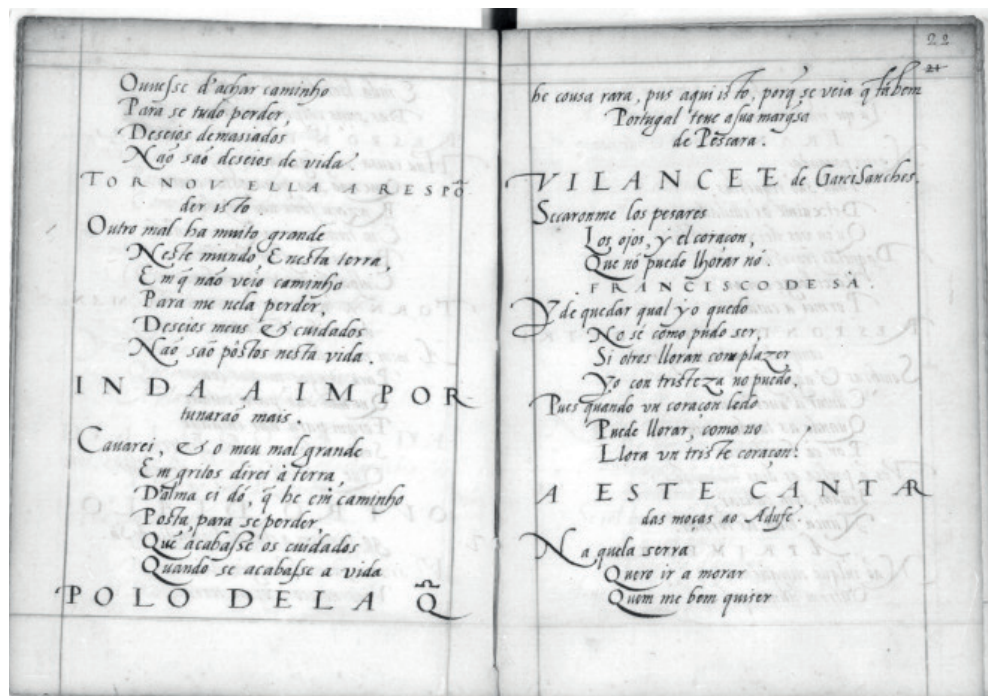 Ouuesse d'achar caminho
Para se tudo perder,
Deseios demasiados
Naõ saõ deseios de vida.
TORNOV ELLA A RESPÕ
der isto.
Outro mal ha muito grande
Neste mundo E nesta terra,
Em q̃ não veio caminho
Para me nela perder,
Deseios meus & cuidados
Naõ saõ pòstos nesta vida.
INDA A IMPOR
tunaraõ mais
Cauarei, & o meu mal grande
Em gritos direi à terra,
D'alma ei dó, q̃ he em caminho
Posta, para se perder,
Que acabasse os cuidados
Quando se acabasse a vida
POLO DELA Q̃
22
21
he cousa rara, pus aqui isto, porq̃ se veia q̃ tãbem
Portugal teue a sua marq̃sa
de Pescara.
VILANCETE de Garci Sanches.
Sccaronme los pesares
Los ojos, y el coraçon,
Que nó puedo lhorar nó.
FRANCISCO DE SA.
Y de quedar qual yo quedo
No sé como pudo ser,
Si otros lloran con plazer
Yo con tristeza no puedo,
Pues quando vn coraçon ledo
Puede llorar, como no
Llora vn triste coraçon?
A ESTE CANTAR
das moças ao Adufe.
Na quela serra
Quero ir a morar
Quem me bem quiser